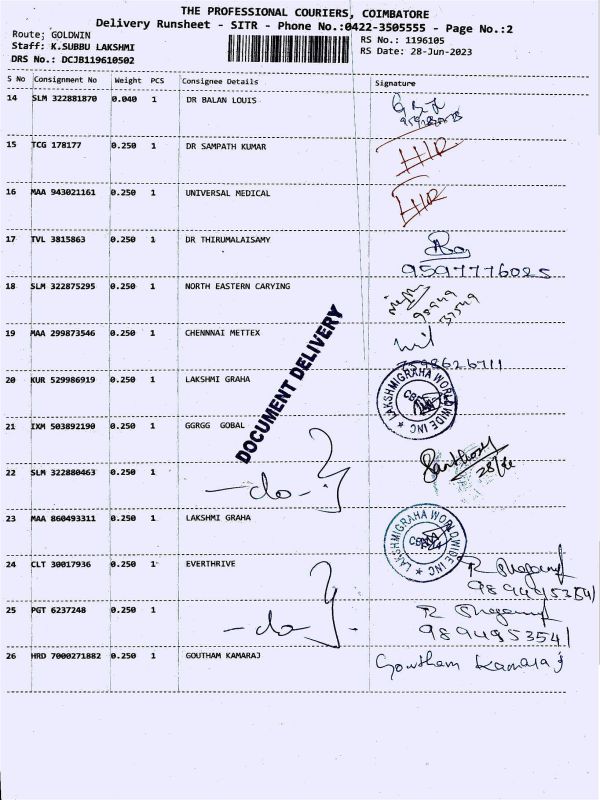 THE PROFESSIONAL COURIERS, COIMBATORE
Delivery Runsheet - SITR - Phone No.:0422-3505555 - Page No.:2
Route; GOLDWIN
Staff: K.SUBBU LAKSHMI
DRS No.: DCJB119610502
RS No.: 1196105
RS Date: 28-Jun-2023
S No Consignment No Weight PCS Consignee Details Signature
14 SLM 322881870 0.040 1 DR BALAN LOUIS
15 TCG 178177 0.250 1 DR SAMPATH KUMAR
16 MAA 943021161 0.250 1 UNIVERSAL MEDICAL
17 TVL 3815863 0.250 1 DR THIRUMALAISAMY
9597776025
18 SLM 322875295 0.250 1 NORTH EASTERN CARYING
19 MAA 299873546 0.250 1 CHENNNAI METTEX
DOCUMENT DELIVERY
20 KUR 529986919 0.250 1 LAKSHMI GRAHA
LAKSHMIGRAHA WORLDWIDE INC
21 IXM 503892190 0.250 1 GGRGG GOBAL
22 SLM 322880463 0.250 1 -do-
Santhosh
23 MAA 860493311 0.250 1 LAKSHMI GRAHA
LAKSHMIGRAHA WORLDWIDE INC
24 CLT 30017936 0.250 1 EVERTHRIVE
9894495354
25 PGT 6237248 0.250 1 -do-
9894953541
26 HRD 7000271882 0.250 1 GOUTHAM KAMARAJ Goutham Kamaraj